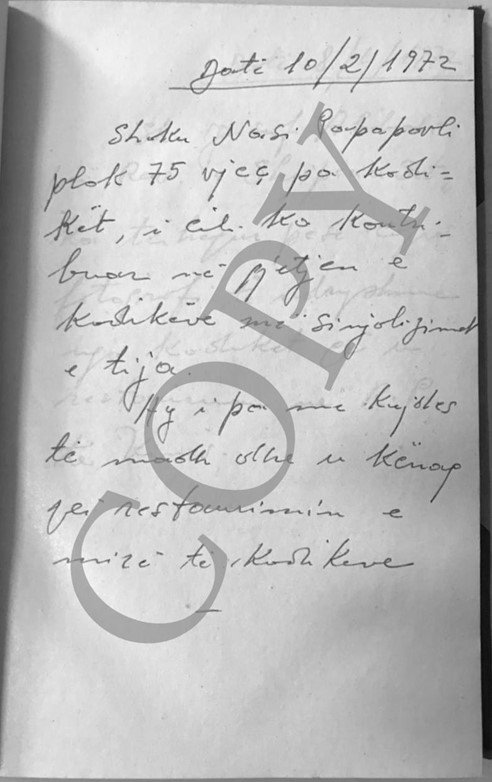 Datë 10/2/1972
Shoku Nasi Papapavli
plak 75 vjeç pa kodi=
kët, i cili ka kontri-
buar në gjetjen e
kodikëve me sinjalizimet
e tija.
Ay i pa me kujdes
të madh dhe u kënaq
për restaurimin e
mirë të kodikeve
COPY